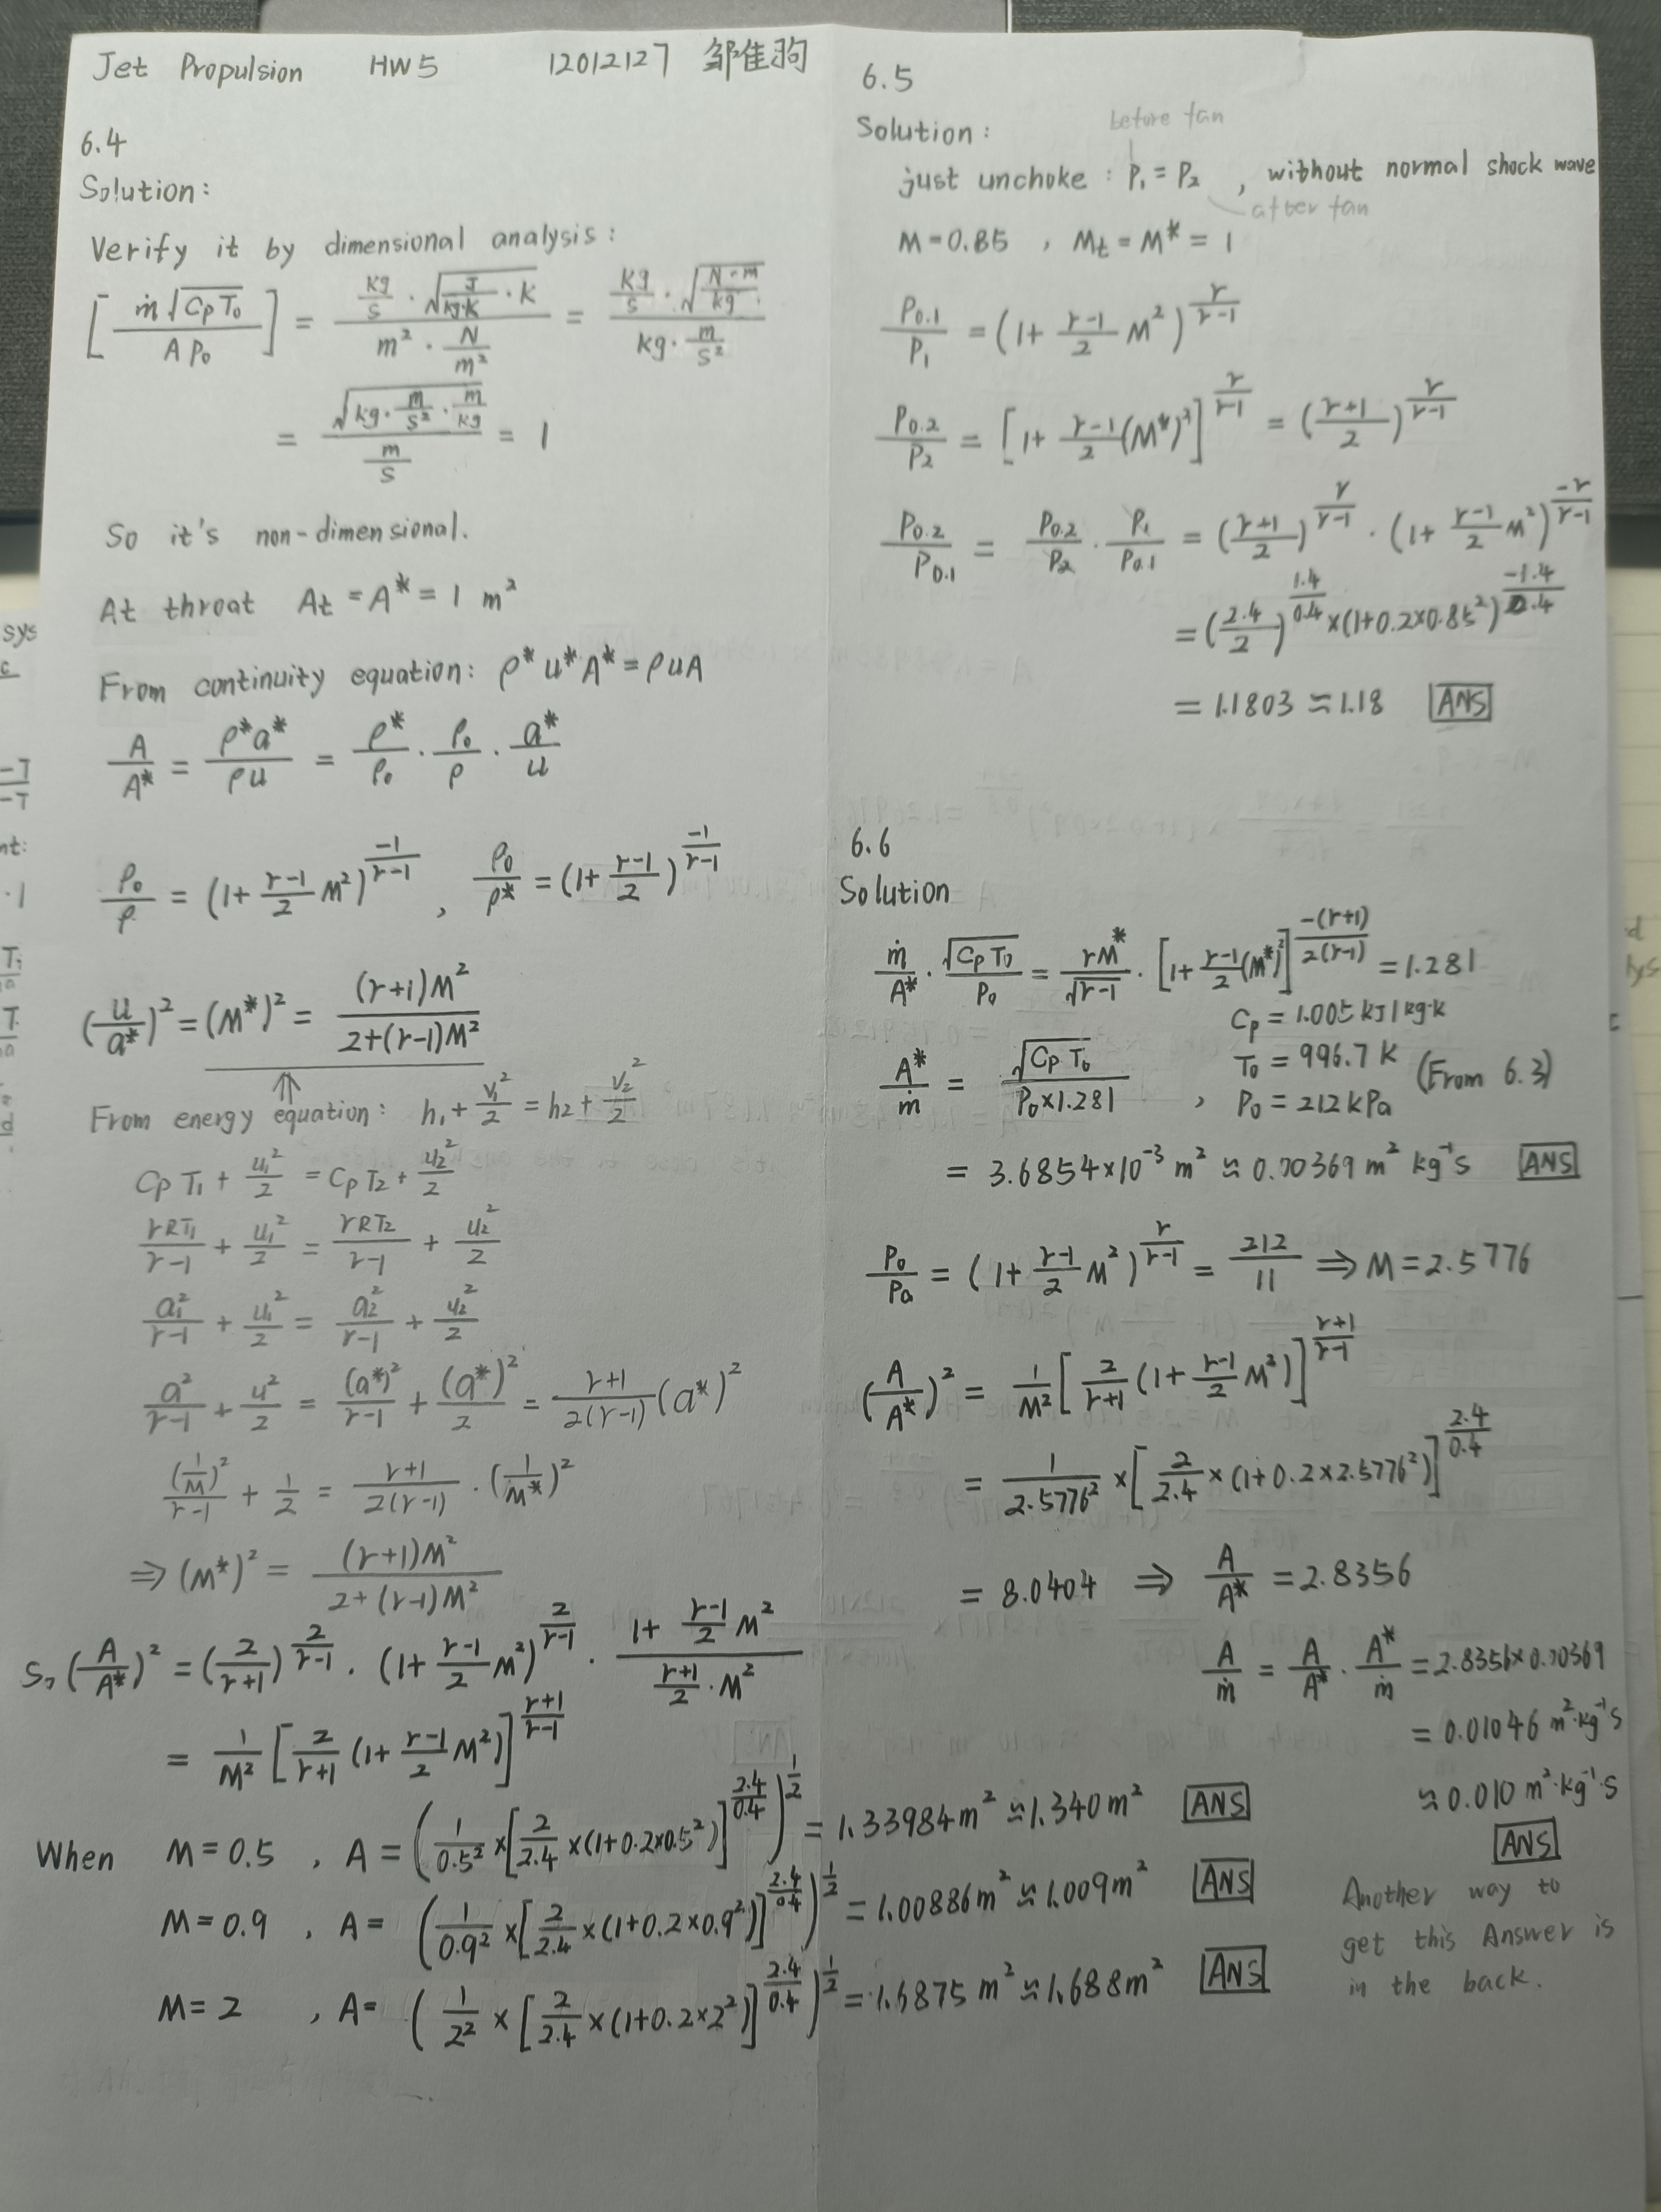 Jet Propulsion HW5 12012127 邹佳驹
6.4
Solution:
Verify it by dimensional analysis:
[ṁ√(CpT₀) / (A P₀)] = (kg/s · √(J/(kg·K) · K)) / (m² · N/m²) = (kg/s · √(N·m/kg)) / (kg · m/s²)
= √(kg · m/s² · m/kg) / (m/s) = 1
So it's non-dimensional.
At throat At = A* = 1 m²
From continuity equation: ρ* u* A* = ρuA
A/A* = ρ*a*/(ρu) = ρ*/ρ₀ · ρ₀/ρ · a*/u
ρ₀/ρ = (1 + (r-1)/2 M²)^(-1/(r-1)) , ρ₀/ρ* = (1 + (r-1)/2)^(-1/(r-1))
(u/a*)² = (M*)² = (r+1)M² / (2+(r-1)M²)
⇑
From energy equation: h₁ + V₁²/2 = h₂ + V₂²/2
CpT₁ + u₁²/2 = CpT₂ + u₂²/2
rRT₁/(r-1) + u₁²/2 = rRT₂/(r-1) + u₂²/2
a₁²/(r-1) + u₁²/2 = a₂²/(r-1) + u₂²/2
a²/(r-1) + u²/2 = (a*)²/(r-1) + (a*)²/2 = (r+1)/(2(r-1)) (a*)²
(1/M)²/(r-1) + 1/2 = (r+1)/(2(r-1)) · (1/M*)²
⇒ (M*)² = (r+1)M² / (2+(r-1)M²)
So (A/A*)² = (2/(r+1))^(2/(r-1)) · (1 + (r-1)/2 M²)^(2/(r-1)) · (1 + (r-1)/2 M²) / ((r+1)/2 · M²)
= 1/M² [2/(r+1) (1 + (r-1)/2 M²)]^((r+1)/(r-1))
When M=0.5 , A = (1/0.5² × [2/2.4 × (1+0.2×0.5²)]^(2.4/0.4))^(1/2) = 1.33984 m² ≈ 1.340 m² ANS
M=0.9 , A = (1/0.9² × [2/2.4 × (1+0.2×0.9²)]^(2.4/0.4))^(1/2) = 1.00886 m² ≈ 1.009 m² ANS
M=2 , A= (1/2² × [2/2.4 × (1+0.2×2²)]^(2.4/0.4))^(1/2) = 1.6875 m² ≈ 1.688 m² ANS
6.5
Solution:
before fan
just unchoke : P₁ = P₂ , without normal shock wave
after fan
M=0.85 , Mt = M* = 1
P₀.₁/P₁ = (1 + (r-1)/2 M²)^(r/(r-1))
P₀.₂/P₂ = [1 + (r-1)/2 (M*)²]^(r/(r-1)) = ((r+1)/2)^(r/(r-1))
P₀.₂/P₀.₁ = P₀.₂/P₂ · P₁/P₀.₁ = ((r+1)/2)^(r/(r-1)) · (1 + (r-1)/2 M²)^(-r/(r-1))
= (2.4/2)^(1.4/0.4) × (1+0.2×0.85²)^(-1.4/0.4)
= 1.1803 ≈ 1.18 ANS
6.6
Solution
ṁ/A* · √(CpT₀)/P₀ = rM*/√(r-1) · [1 + (r-1)/2 (M*)²]^(-(r+1)/(2(r-1))) = 1.281
Cp = 1.005 kJ/kg·k
A*/ṁ = √(CpT₀)/(P₀×1.281) , T₀ = 996.7 K (From 6.3)
P₀ = 212 kPa
= 3.6854×10⁻³ m² ≈ 0.00369 m² kg⁻¹s ANS
P₀/Pa = (1 + (r-1)/2 M²)^(r/(r-1)) = 212/11 ⇒ M = 2.5776
(A/A*)² = 1/M² [2/(r+1) (1 + (r-1)/2 M²)]^((r+1)/(r-1))
= 1/2.5776² × [2/2.4 × (1+0.2×2.5776²)]^(2.4/0.4)
= 8.0404 ⇒ A/A* = 2.8356
A/ṁ = A/A* · A*/ṁ = 2.8356×0.00369
= 0.01046 m²·kg⁻¹s
≈ 0.010 m²·kg⁻¹·s
ANS
Another way to
get this Answer is
in the back.